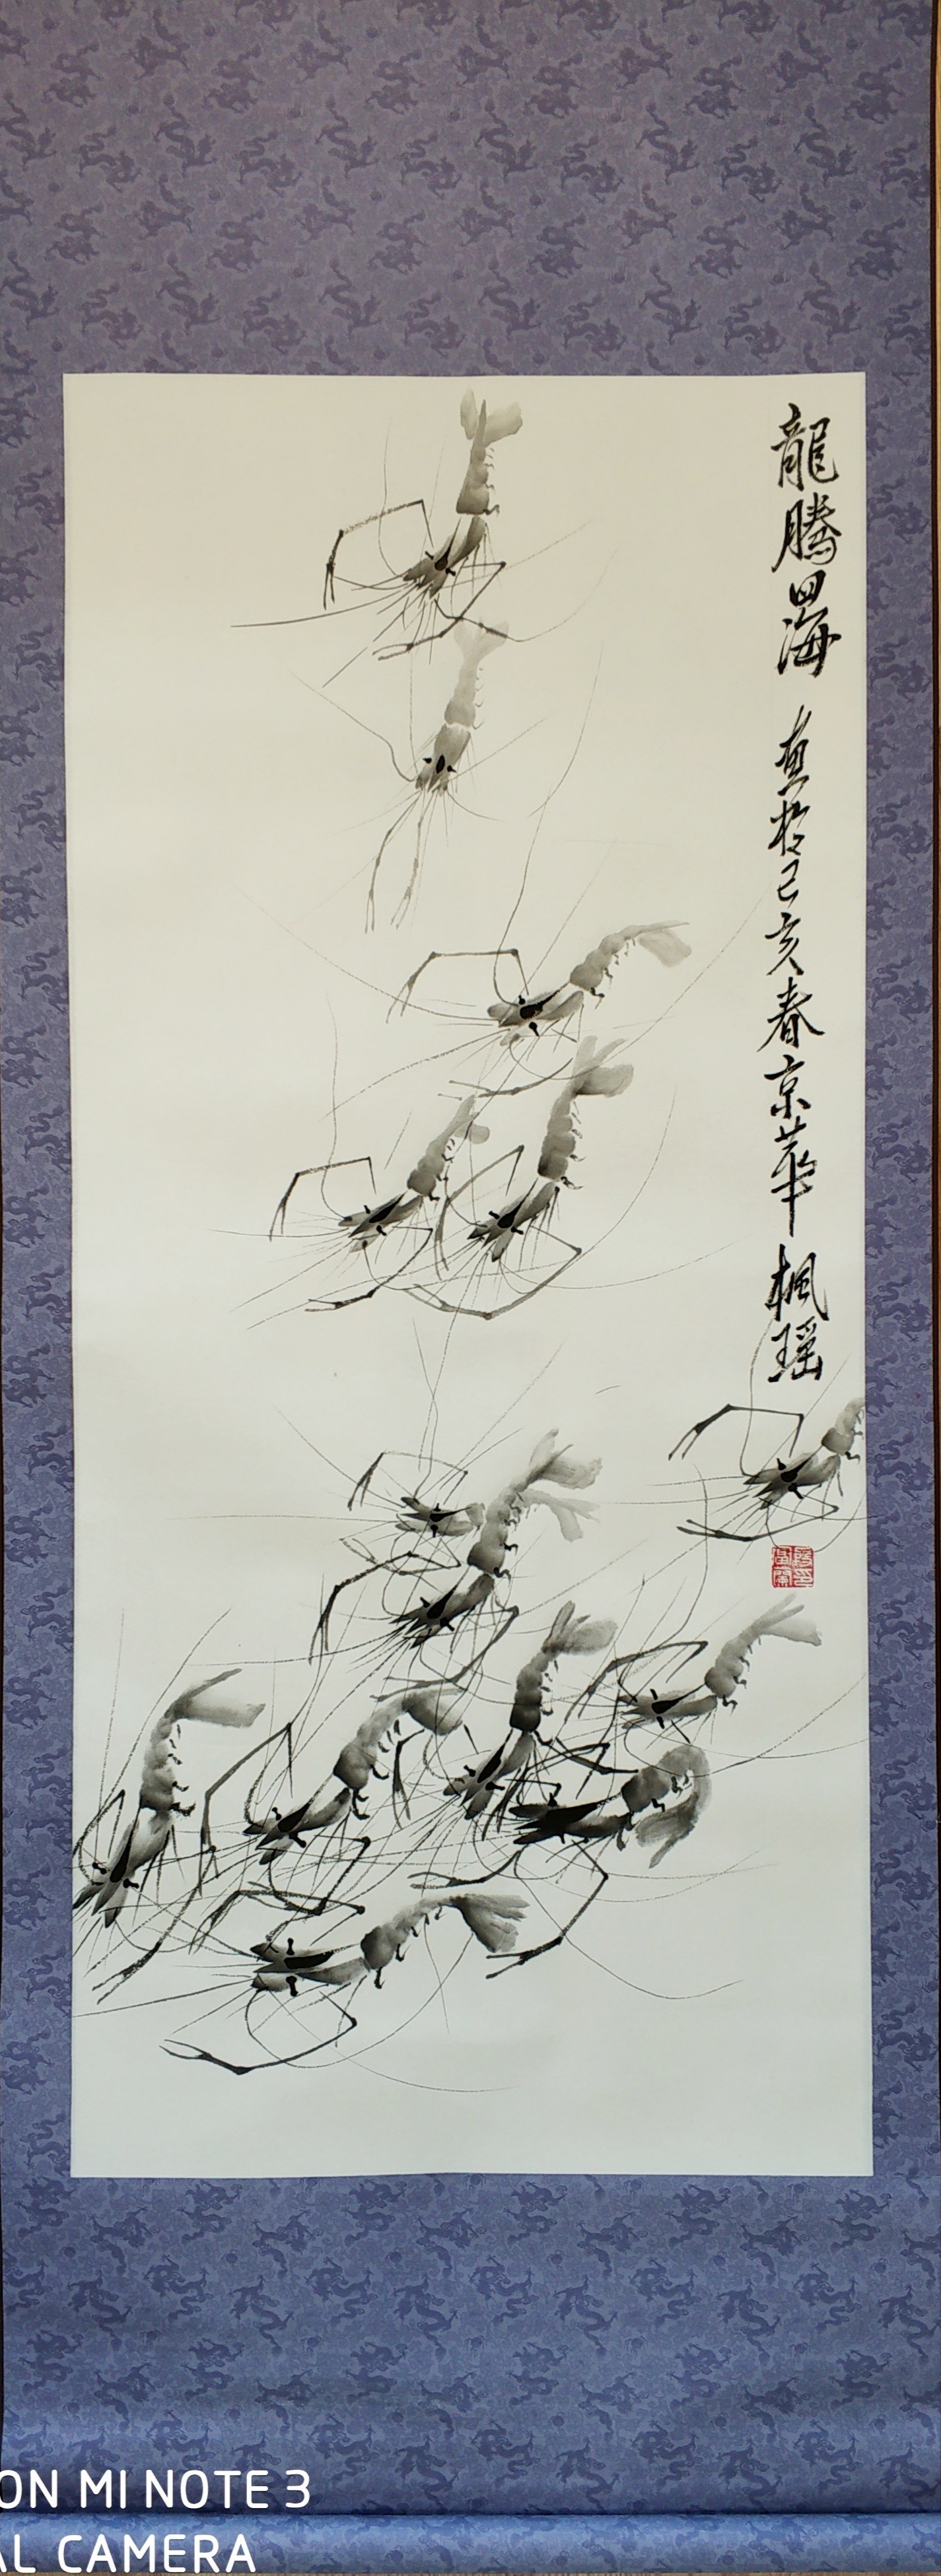 龍騰四海 直於己亥春京華 楓瑶
ON MI NOTE 3
AL CAMERA